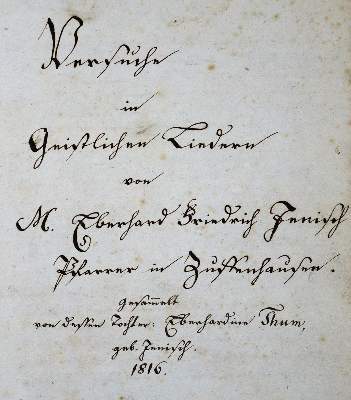 Versuche
in
Geistlichen Liedern
von
M. Eberhard Friedrich Jenisch
Pfarrer in Zuffenhausen.
Gesammelt
von dessen Tochter: Eberhardine Thum,
geb. Jenisch.
1816.